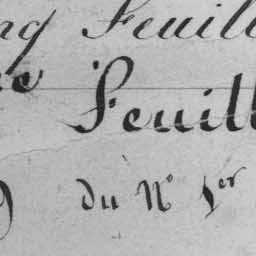 ng Feuill
re Feuill
du N° 1er